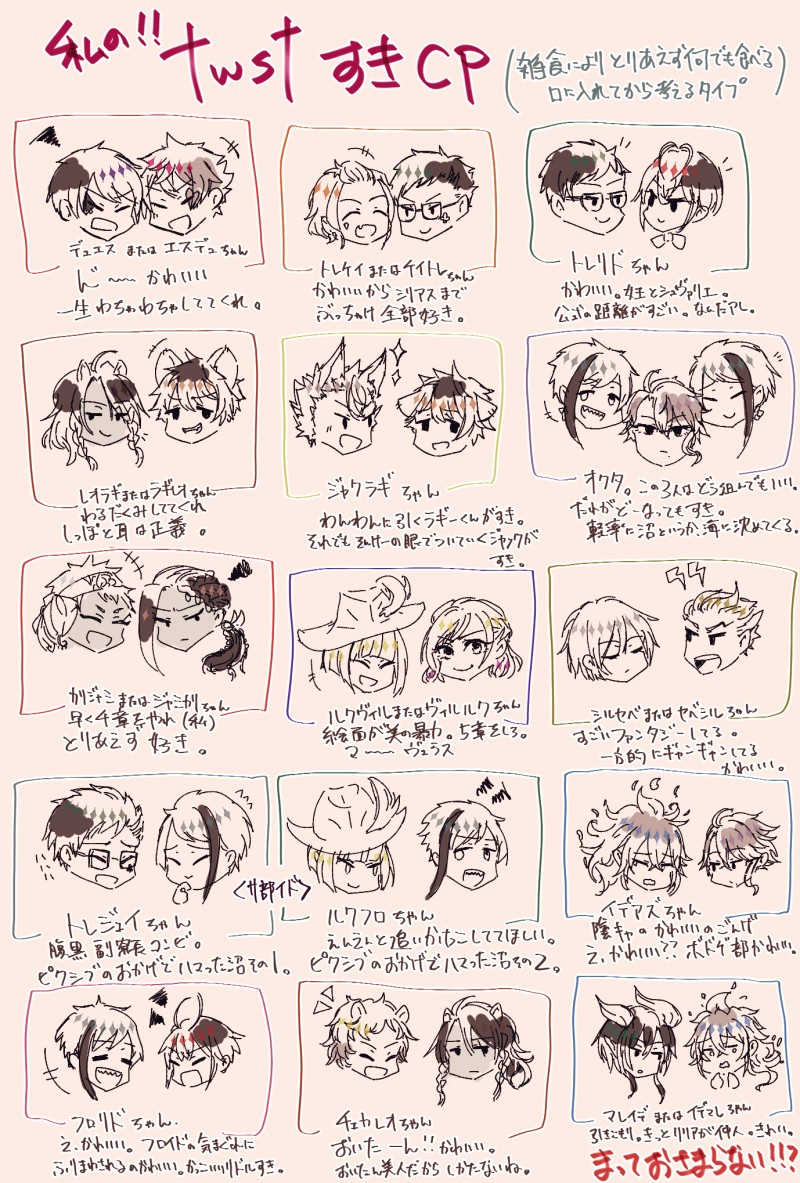 私の!! twst すきCP
(雑食により とりあえず何でも食べる
口に入れてから考えるタイプ)
デュエス または エスデュちゃん
ん〜〜 かわいい
一生わちゃわちゃしててくれ。
トレケイまたはケイトレちゃん
かわいいからシリアスまで
ぶっちゃけ全部好き。
トレリドちゃん
かわいい。女王とシュヴァリエ。
公式の距離がすごい。なんだアレ。
レオラギまたはラギレオちゃん
わるだくみしててくれ
しっぽと耳は正義。
ジャクラギ ちゃん
わんわんに引くラギーくんがすき。
それでもの眼でついていくジャックが
すき。
オクタ。この3人はどう組んでもいい。
だれがどーなってもすき。
軽率に沼というか、海に沈めてくる。
カリジャミまたはジャミカリちゃん
早く4章をやれ(私)
とりあえず 好き。
ルクヴィルまたはヴィルルクちゃん
絵面が美の暴力。5章をしろ。
マ〜〜 ヴェラス
シルセベまたはセベシルちゃん
すごいファンタジーしてる。
一方的にギャンギャンしてる
かわいい。
トレジェイちゃん
腹黒副寮長コンビ。
ピクシブのおかげでハマった沼その1。
<サ部イド>
ルクフロちゃん
えんえんと追いかけっこしててほしい。
ピクシブのおかげでハマった沼その2。
イデアズちゃん
陰キャのかわいいのごんげ
え、かわいい?? ボドゲ部かわいい。
フロリドちゃん
え、かわいい。フロイドの気まぐれに
ふりまわされるのかわいい。かっこいいリドルすき。
チェカレオちゃん
おいたーん!! かわいい。
おいたん美人だからしかたないね。
マレイデ または イデマレちゃん
引きこもり。きっとリリアが仲人。きれい。
まっておさまらない!!?